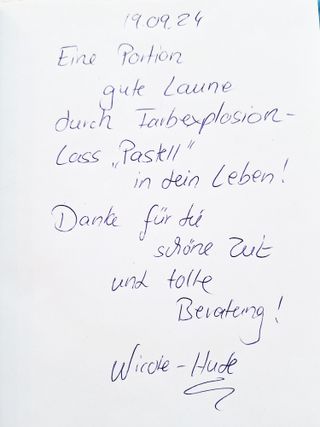 19.09.24
Eine Portion
gute Laune
durch Farbexplosion -
Lass "Pastell"
in dein Leben!
Danke für die
schöne Zeit
und tolle
Beratung!